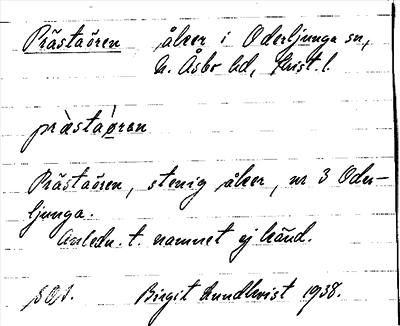 Prästaören åker i Oderljunga sn,
N. Åsbo hd, Krist. l.
prästaören
Prästaören, stenig åker, nr 3 Oder-
ljunga.
Anledn. t. namnet ej känd.
Birgit Lundkvist 1938.